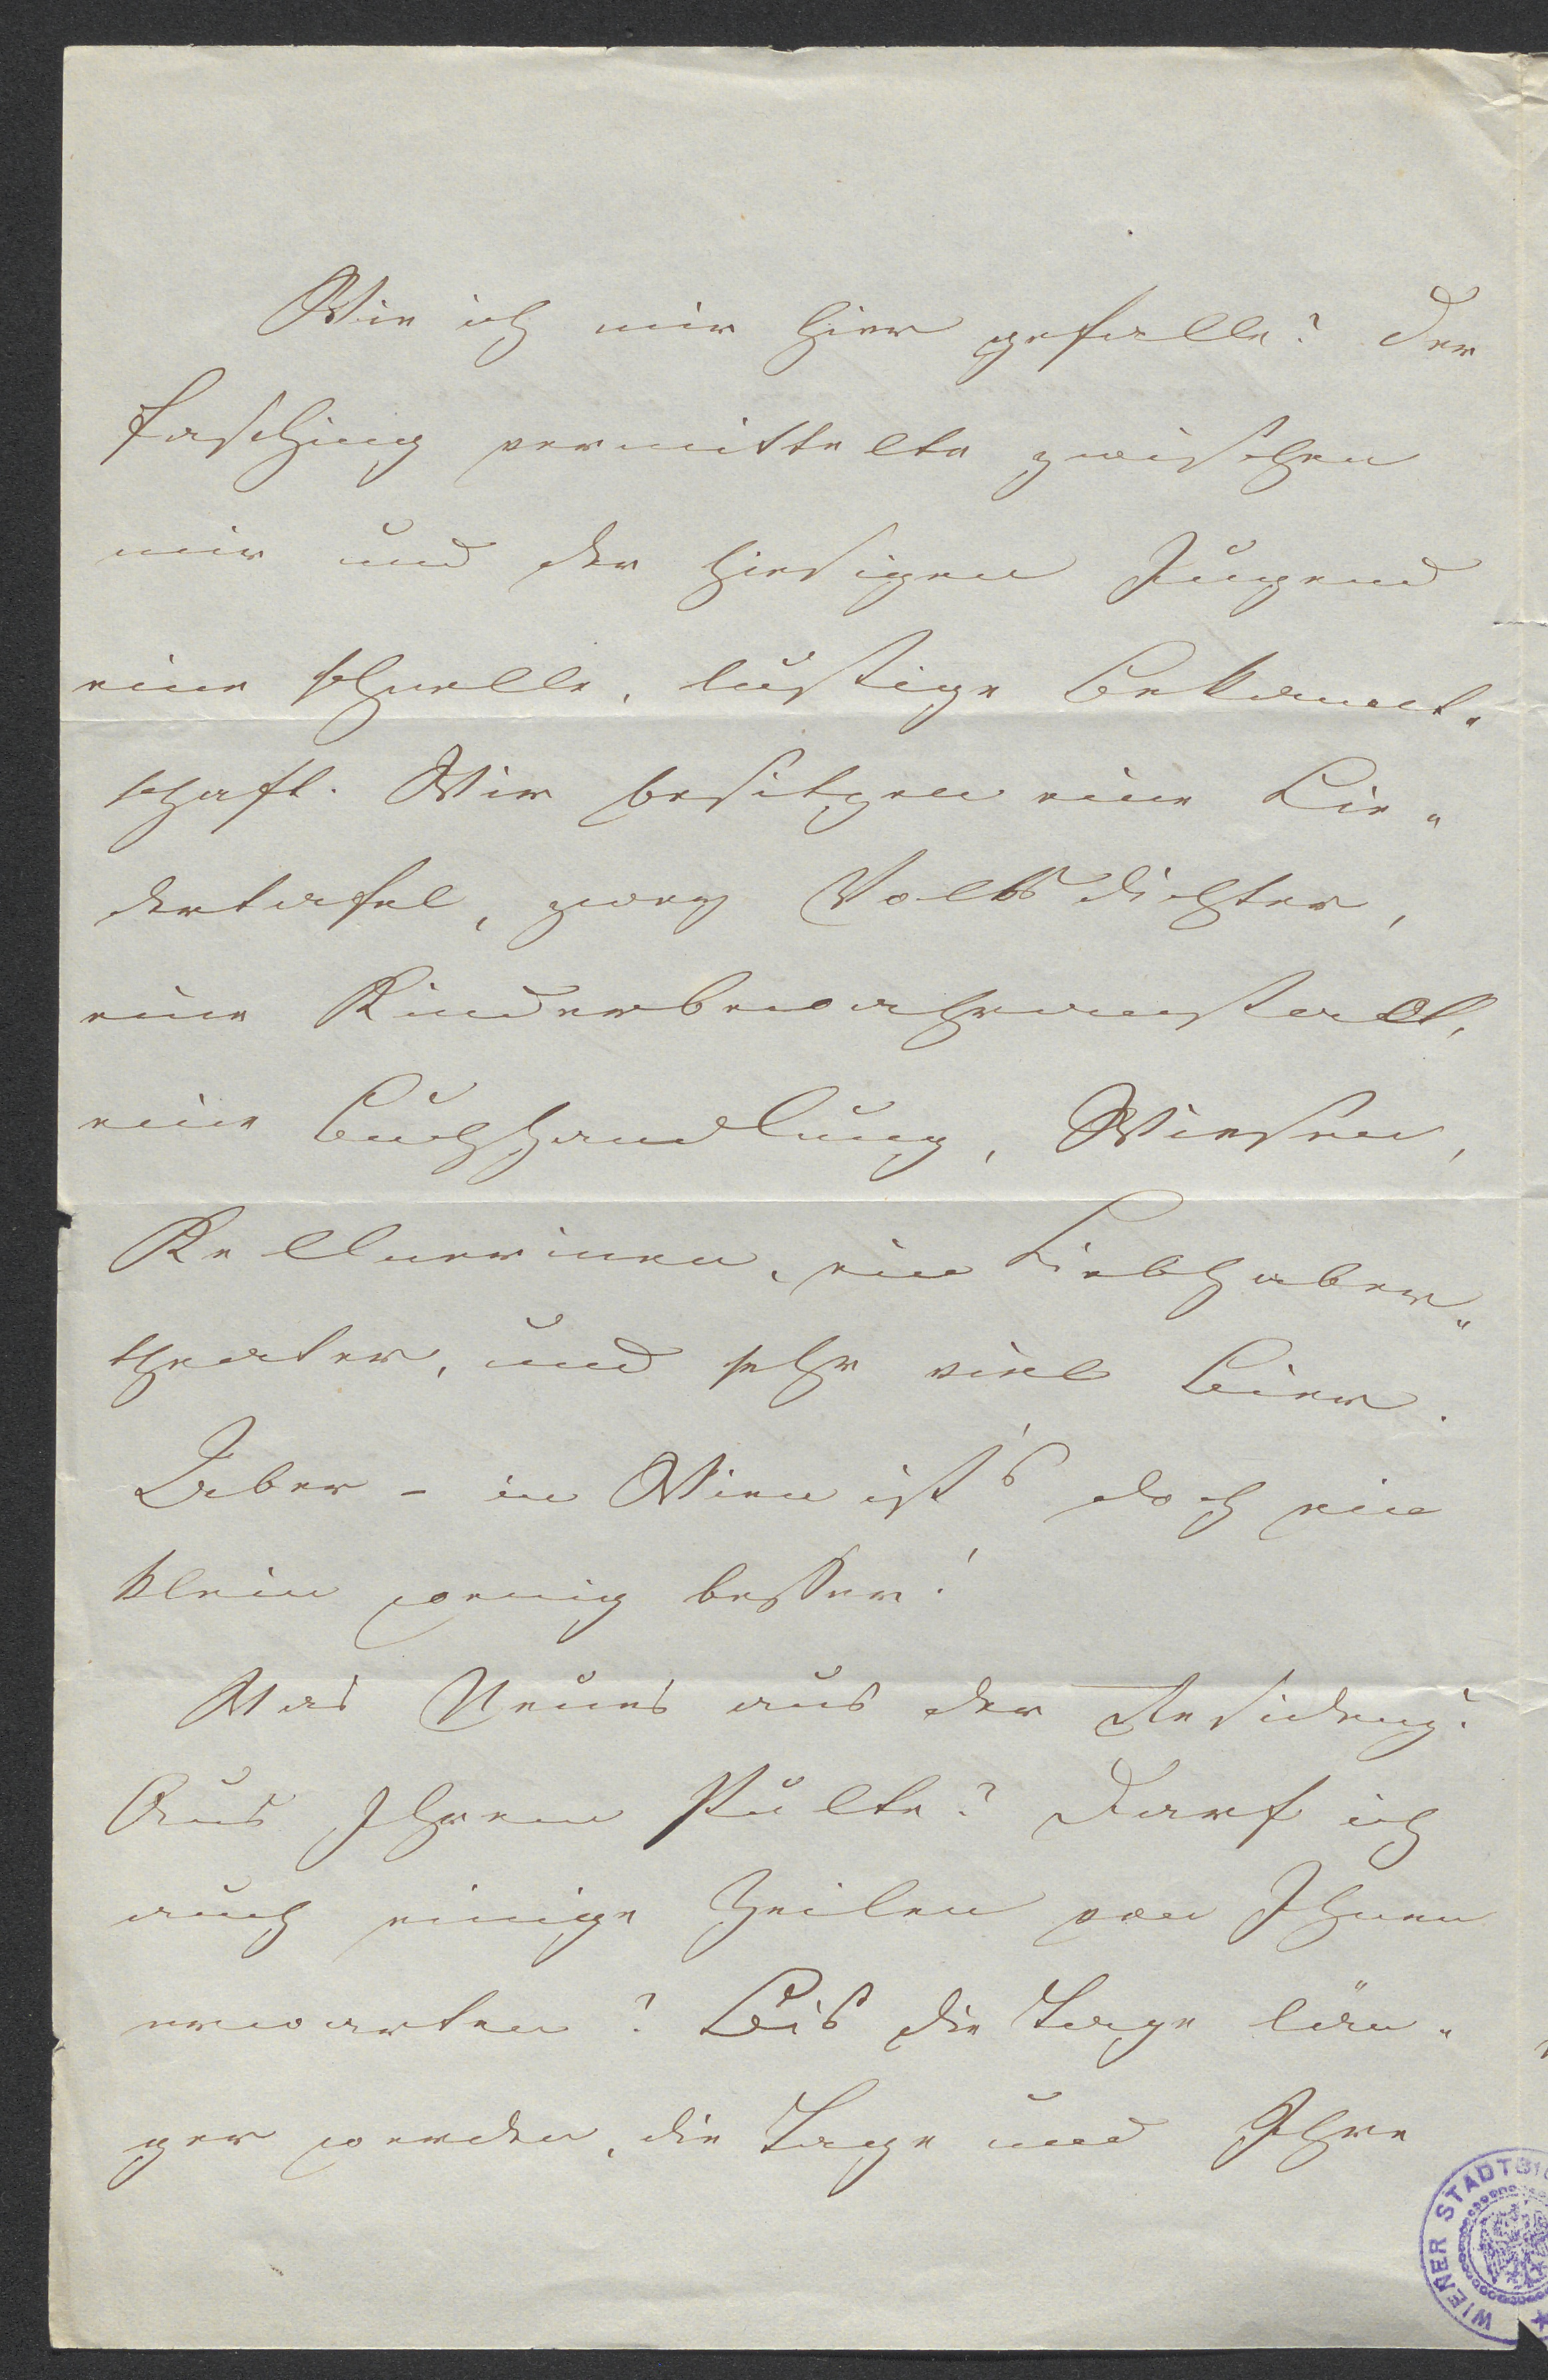 Wie ich mir hier gefalle? Der
Fasching vermittelte zwischen
mir und der hiesigen Jugend
eine schnelle, lustige Bekannt„
schaft. Wir besitzen eine Lie„
dertafel, zwey Volksdichter,
eine Kinderbewahranstalt,
eine Buchhandlung, Wiesen,
Kellnerinen, ein Liebhaber„
theater, und sehr viel Bier.
Aber - in Wien ist's doch ein
klein wenig besser!
Was Neues aus der Residenz?
Aus Ihrem Pulte? Darf ich
auch einige Zeilen von Ihnen
erwarten? Bis die Tage län„
ger werden, die Tage und Ihre
WIENER STADTBI